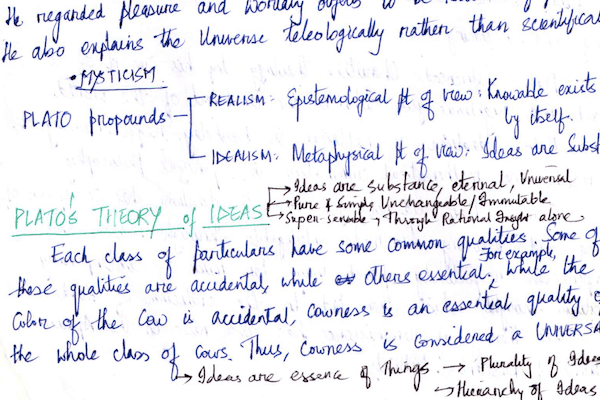 He regarded pleasure and worldly objects to be
He also explains the Universe teleologically rather than scientifica
• MYSTICISM
PLATO propounds
REALISM: Epistemological pt of view: Knowable exists
by itself.
IDEALISM: Metaphysical pt of view: Ideas are Subst
PLATO'S THEORY of IDEAS
→ Ideas are Substance, eternal, Universal
→ Pure & Simple, Unchangeable/Immutable
→ Super-sensible, Through Rational Insight alone
Each class of particulars have some common qualities. Some of
these qualities are accidental, while others essential. For example, While the
Color of the Cow is accidental, Cowness is an essential quality o
the whole class of cows. Thus, Cowness is Considered a UNIVERSA
→ Ideas are essence of Things → Plurality of Ideas
→ Hierarchy of Ideas